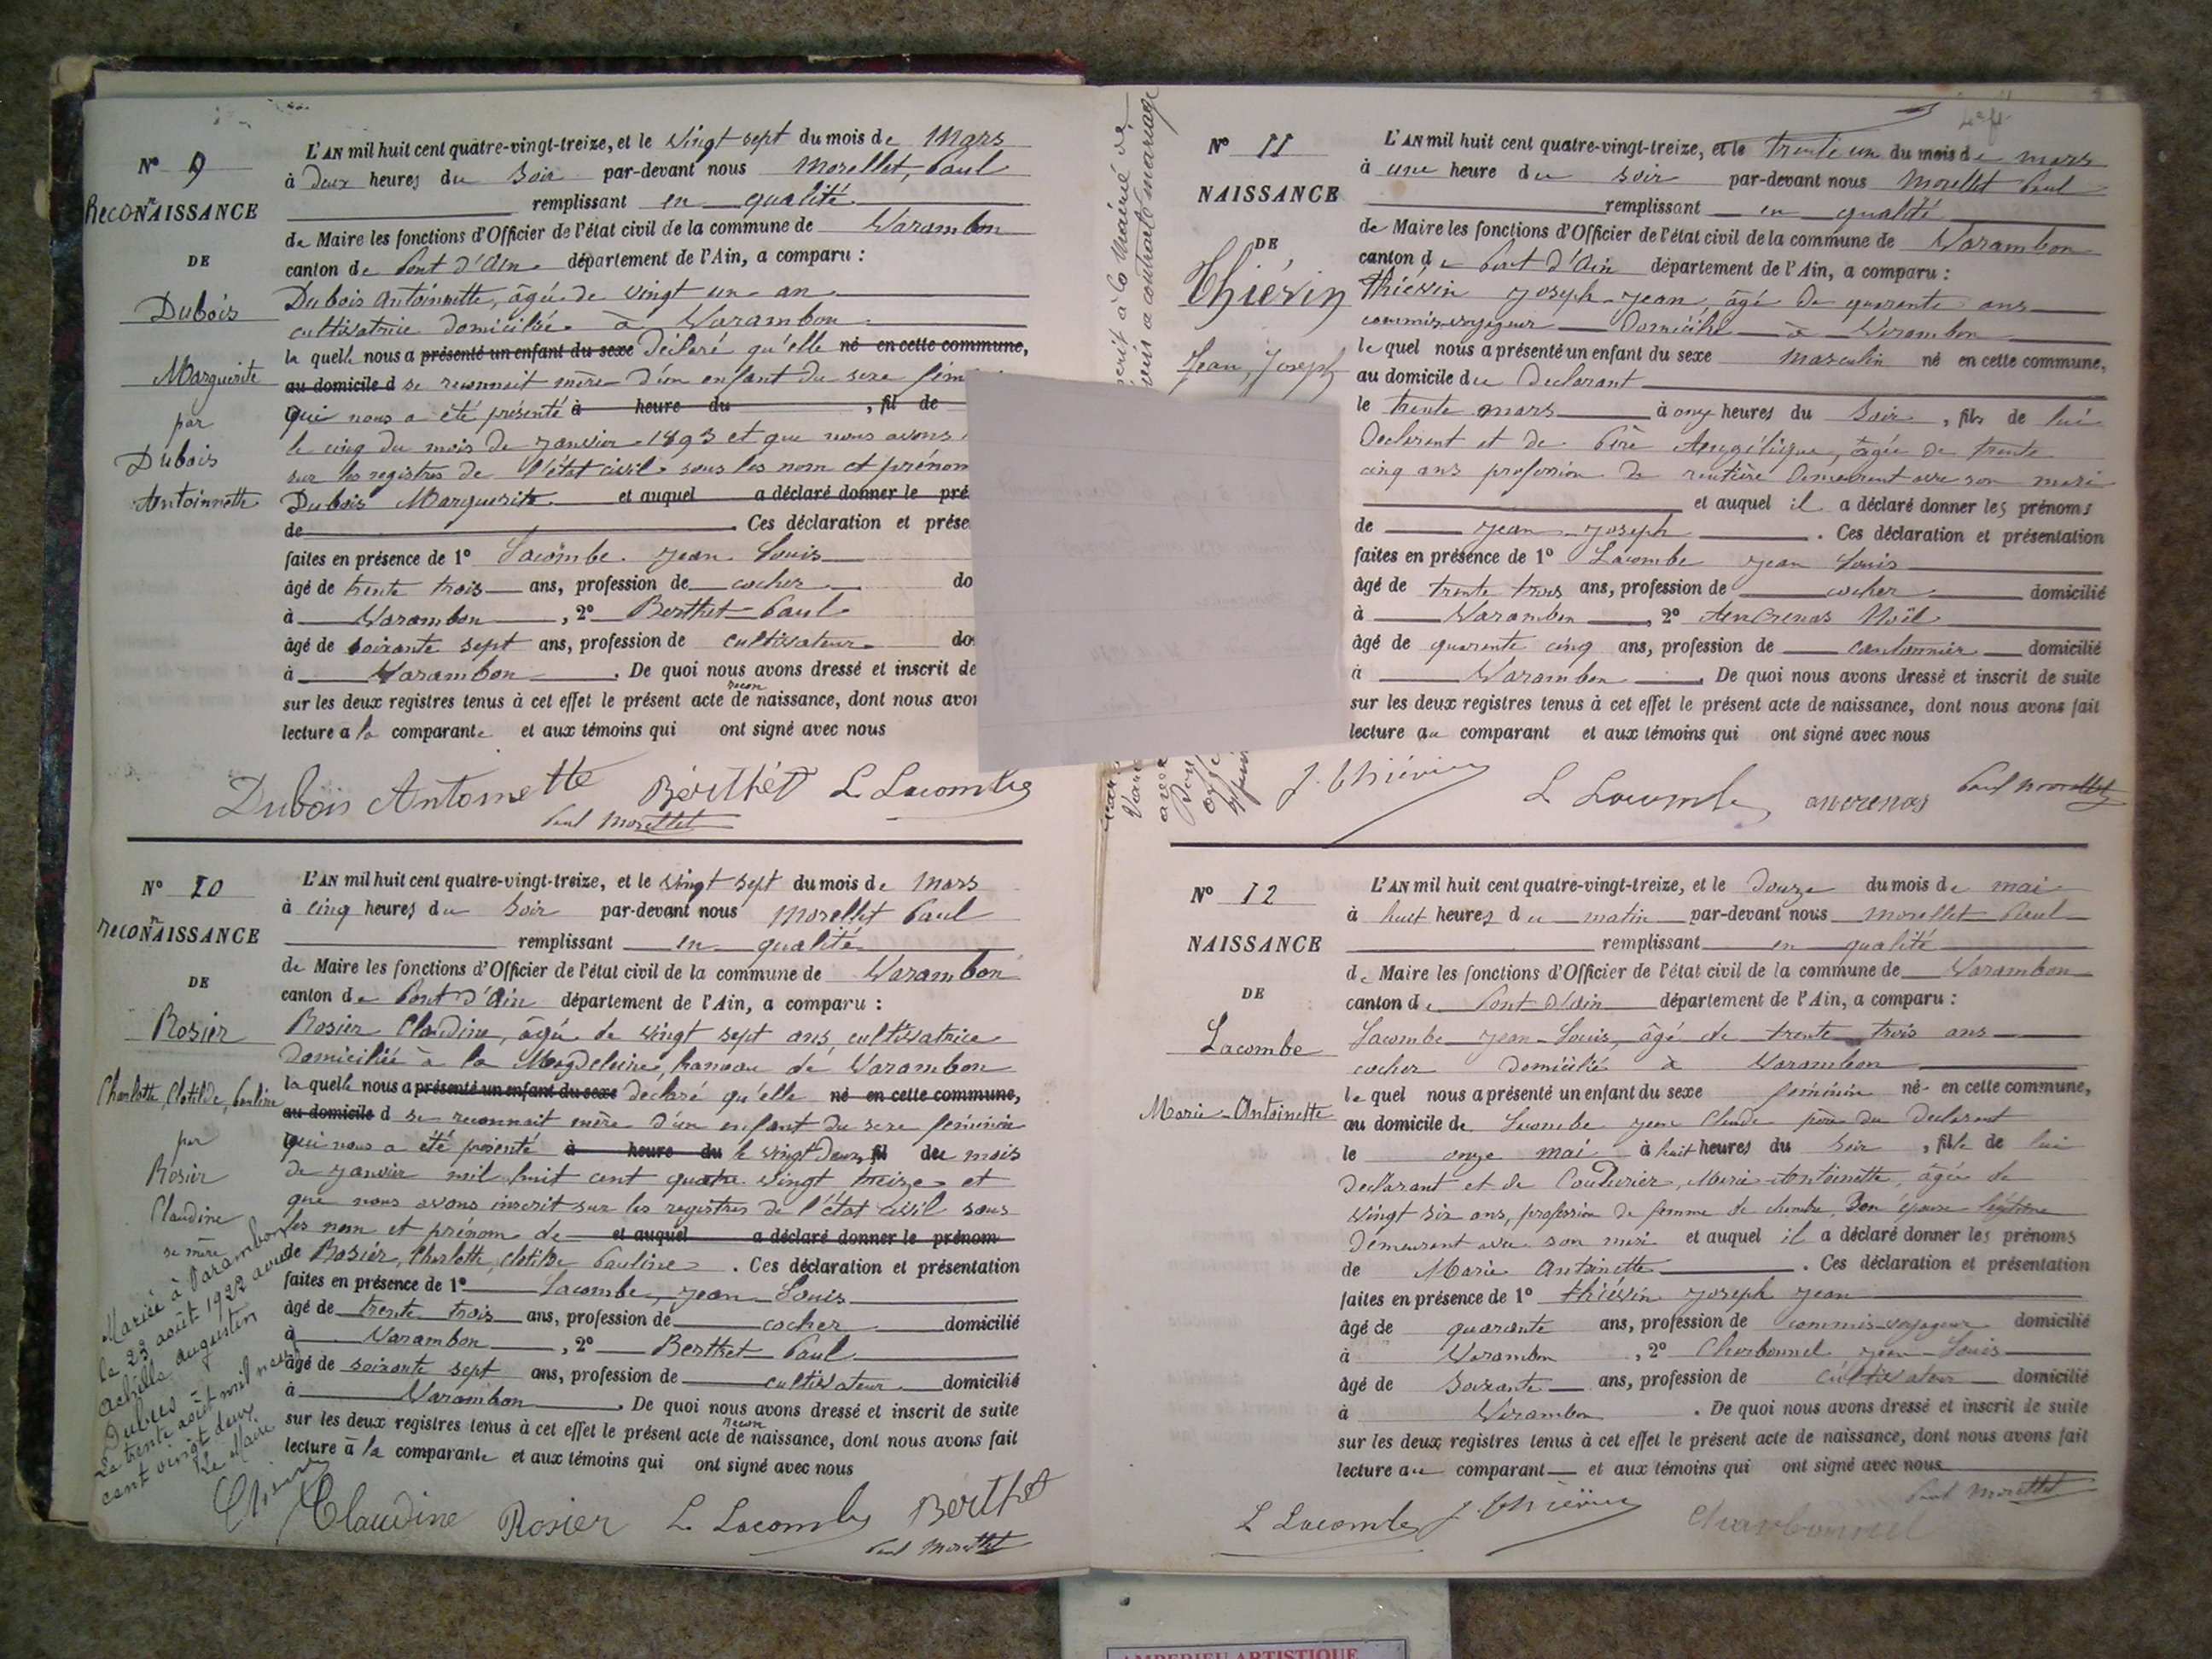 N° 9
RecoNNAISSANCE
DE
Dubois
Marguerite
par
Dubois
Antoinette
L'AN mil huit cent quatre-vingt-treize, et le vingt sept du mois de Mars
à deux heures du Soir par-devant nous Morellet, Paul
remplissant en qualité
de Maire les fonctions d'Officier de l'état civil de la commune de Varambon
canton de Pont d'Ain département de l'Ain, a comparu :
Dubois Antoinette, âgée de vingt un an
cultivatrice domiciliée à Varambon
laquelle nous a présenté un enfant du sexe déclaré qu'elle né en cette commune,
au domicile d se reconnait mère d'un enfant du sexe fém
qui nous a été présenté à heure du , fil de
le cinq du mois de Janvier 1893 et que nous avons
sur les registres de l'état civil sous les nom et prénom
Dubois Marguerite et auquel a déclaré donner le pré
de . Ces déclaration et prése
faites en présence de 1° Lacombe Jean Louis
âgé de trente trois ans, profession de cocher do
à Varambon , 2° Berthet Paul
âgé de soixante sept ans, profession de cultivateur do
à Varambon . De quoi nous avons dressé et inscrit de
sur les deux registres tenus à cet effet le présent acte de reconnaissance, dont nous avon
lecture a la comparante et aux témoins qui ont signé avec nous
Dubois Antoinette Berthet L Lacombe
Paul Morellet
N° 10
recoNNAISSANCE
DE
Rosier
Charlotte, Clotilde, Pauline
par
Rosier
Claudine
sa mère
Mariée à Varambon
le 23 août 1922 avec
Achille augustin
Dubus
Le trente août mil neuf
cent vingt deux
Le Maire
L'AN mil huit cent quatre-vingt-treize, et le vingt sept du mois de Mars
à cinq heures du Soir par-devant nous Morellet Paul
remplissant en qualité
de Maire les fonctions d'Officier de l'état civil de la commune de Varambon
canton de Pont d'Ain département de l'Ain, a comparu :
Rosier Claudine, âgée de vingt sept ans, cultivatrice
domiciliée à la Magdeleine, hameau de Varambon
laquelle nous a présenté un enfant du sexe déclaré qu'elle né en cette commune,
au domicile d se reconnait mère d'un enfant du sexe féminin
qui nous a été présenté à heure du le vingt deux, fil du mois
de Janvier mil huit cent quatre vingt treize et
que nous avons inscrit sur les registres de l'état civil sous
les nom et prénom de et auquel a déclaré donner le prénom
de Rosier, Charlotte, Clotilde Pauline . Ces déclaration et présentation
faites en présence de 1° Lacombe, Jean Louis
âgé de trente trois ans, profession de cocher domicilié
à Varambon , 2° Berthet Paul
âgé de soixante sept ans, profession de cultivateur domicilié
à Varambon . De quoi nous avons dressé et inscrit de suite
sur les deux registres tenus à cet effet le présent acte de reconnaissance, dont nous avons fait
lecture à la comparante et aux témoins qui ont signé avec nous
Claudine Rosier L. Lacombe Berthet
Paul Morellet
N° 11
NAISSANCE
DE
Thiévin
Jean, Joseph
L'AN mil huit cent quatre-vingt-treize, et le trente un du mois de mars
à une heure du soir par-devant nous Morellet Paul
remplissant en qualité
de Maire les fonctions d'Officier de l'état civil de la commune de Varambon
canton de Pont d'Ain département de l'Ain, a comparu :
Thiévin Joseph Jean, âgé de quarante ans
commis-voyageur domicilié à Varambon
lequel nous a présenté un enfant du sexe masculin né en cette commune,
au domicile du déclarant
le trente mars à onze heures du Soir , fils de lui
déclarant et de Angélique, âgée de trente
cinq ans profession de rentière demeurant avec son mari
et auquel il a déclaré donner les prénoms
de Jean Joseph . Ces déclaration et présentation
faites en présence de 1° Lacombe Jean Louis
âgé de trente trois ans, profession de cocher domicilié
à Varambon , 2° Ancrenas Noël
âgé de quarante cinq ans, profession de cantonnier domicilié
à Varambon . De quoi nous avons dressé et inscrit de suite
sur les deux registres tenus à cet effet le présent acte de naissance, dont nous avons fait
lecture au comparant et aux témoins qui ont signé avec nous
J. Thiévin L Lacombe ancrenas Paul Morellet
N° 12
NAISSANCE
DE
Lacombe
Marie-Antoinette
L'AN mil huit cent quatre-vingt-treize, et le Douze du mois de mai
à huit heures du matin par-devant nous Morellet Paul
remplissant en qualité
de Maire les fonctions d'Officier de l'état civil de la commune de Varambon
canton de Pont d'Ain département de l'Ain, a comparu :
Lacombe Jean-Louis, âgé de trente trois ans
cocher domicilié à Varambon
lequel nous a présenté un enfant du sexe féminin né en cette commune,
au domicile de Lacombe Jean Claude père du déclarant
le onze mai à huit heures du soir , fille de lui
déclarant et de Couturier, Marie-Antoinette, âgée de
vingt six ans, profession de femme de chambre, son épouse légitime
demeurant avec son mari et auquel il a déclaré donner les prénoms
de Marie Antoinette . Ces déclaration et présentation
faites en présence de 1° Thiévin Joseph Jean
âgé de quarante ans, profession de commis-voyageur domicilié
à Varambon , 2° Charbonnel Jean-Louis
âgé de Soixante ans, profession de cultivateur domicilié
à Varambon . De quoi nous avons dressé et inscrit de suite
sur les deux registres tenus à cet effet le présent acte de naissance, dont nous avons fait
lecture au comparant et aux témoins qui ont signé avec nous
Paul Morellet
L Lacombe J. Thiévin Charbonnel
AMBERIEU ARTISTIQUE